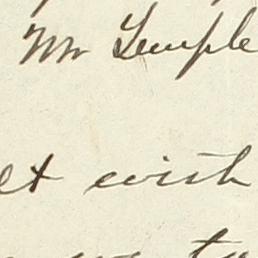 Mr Temple
et with